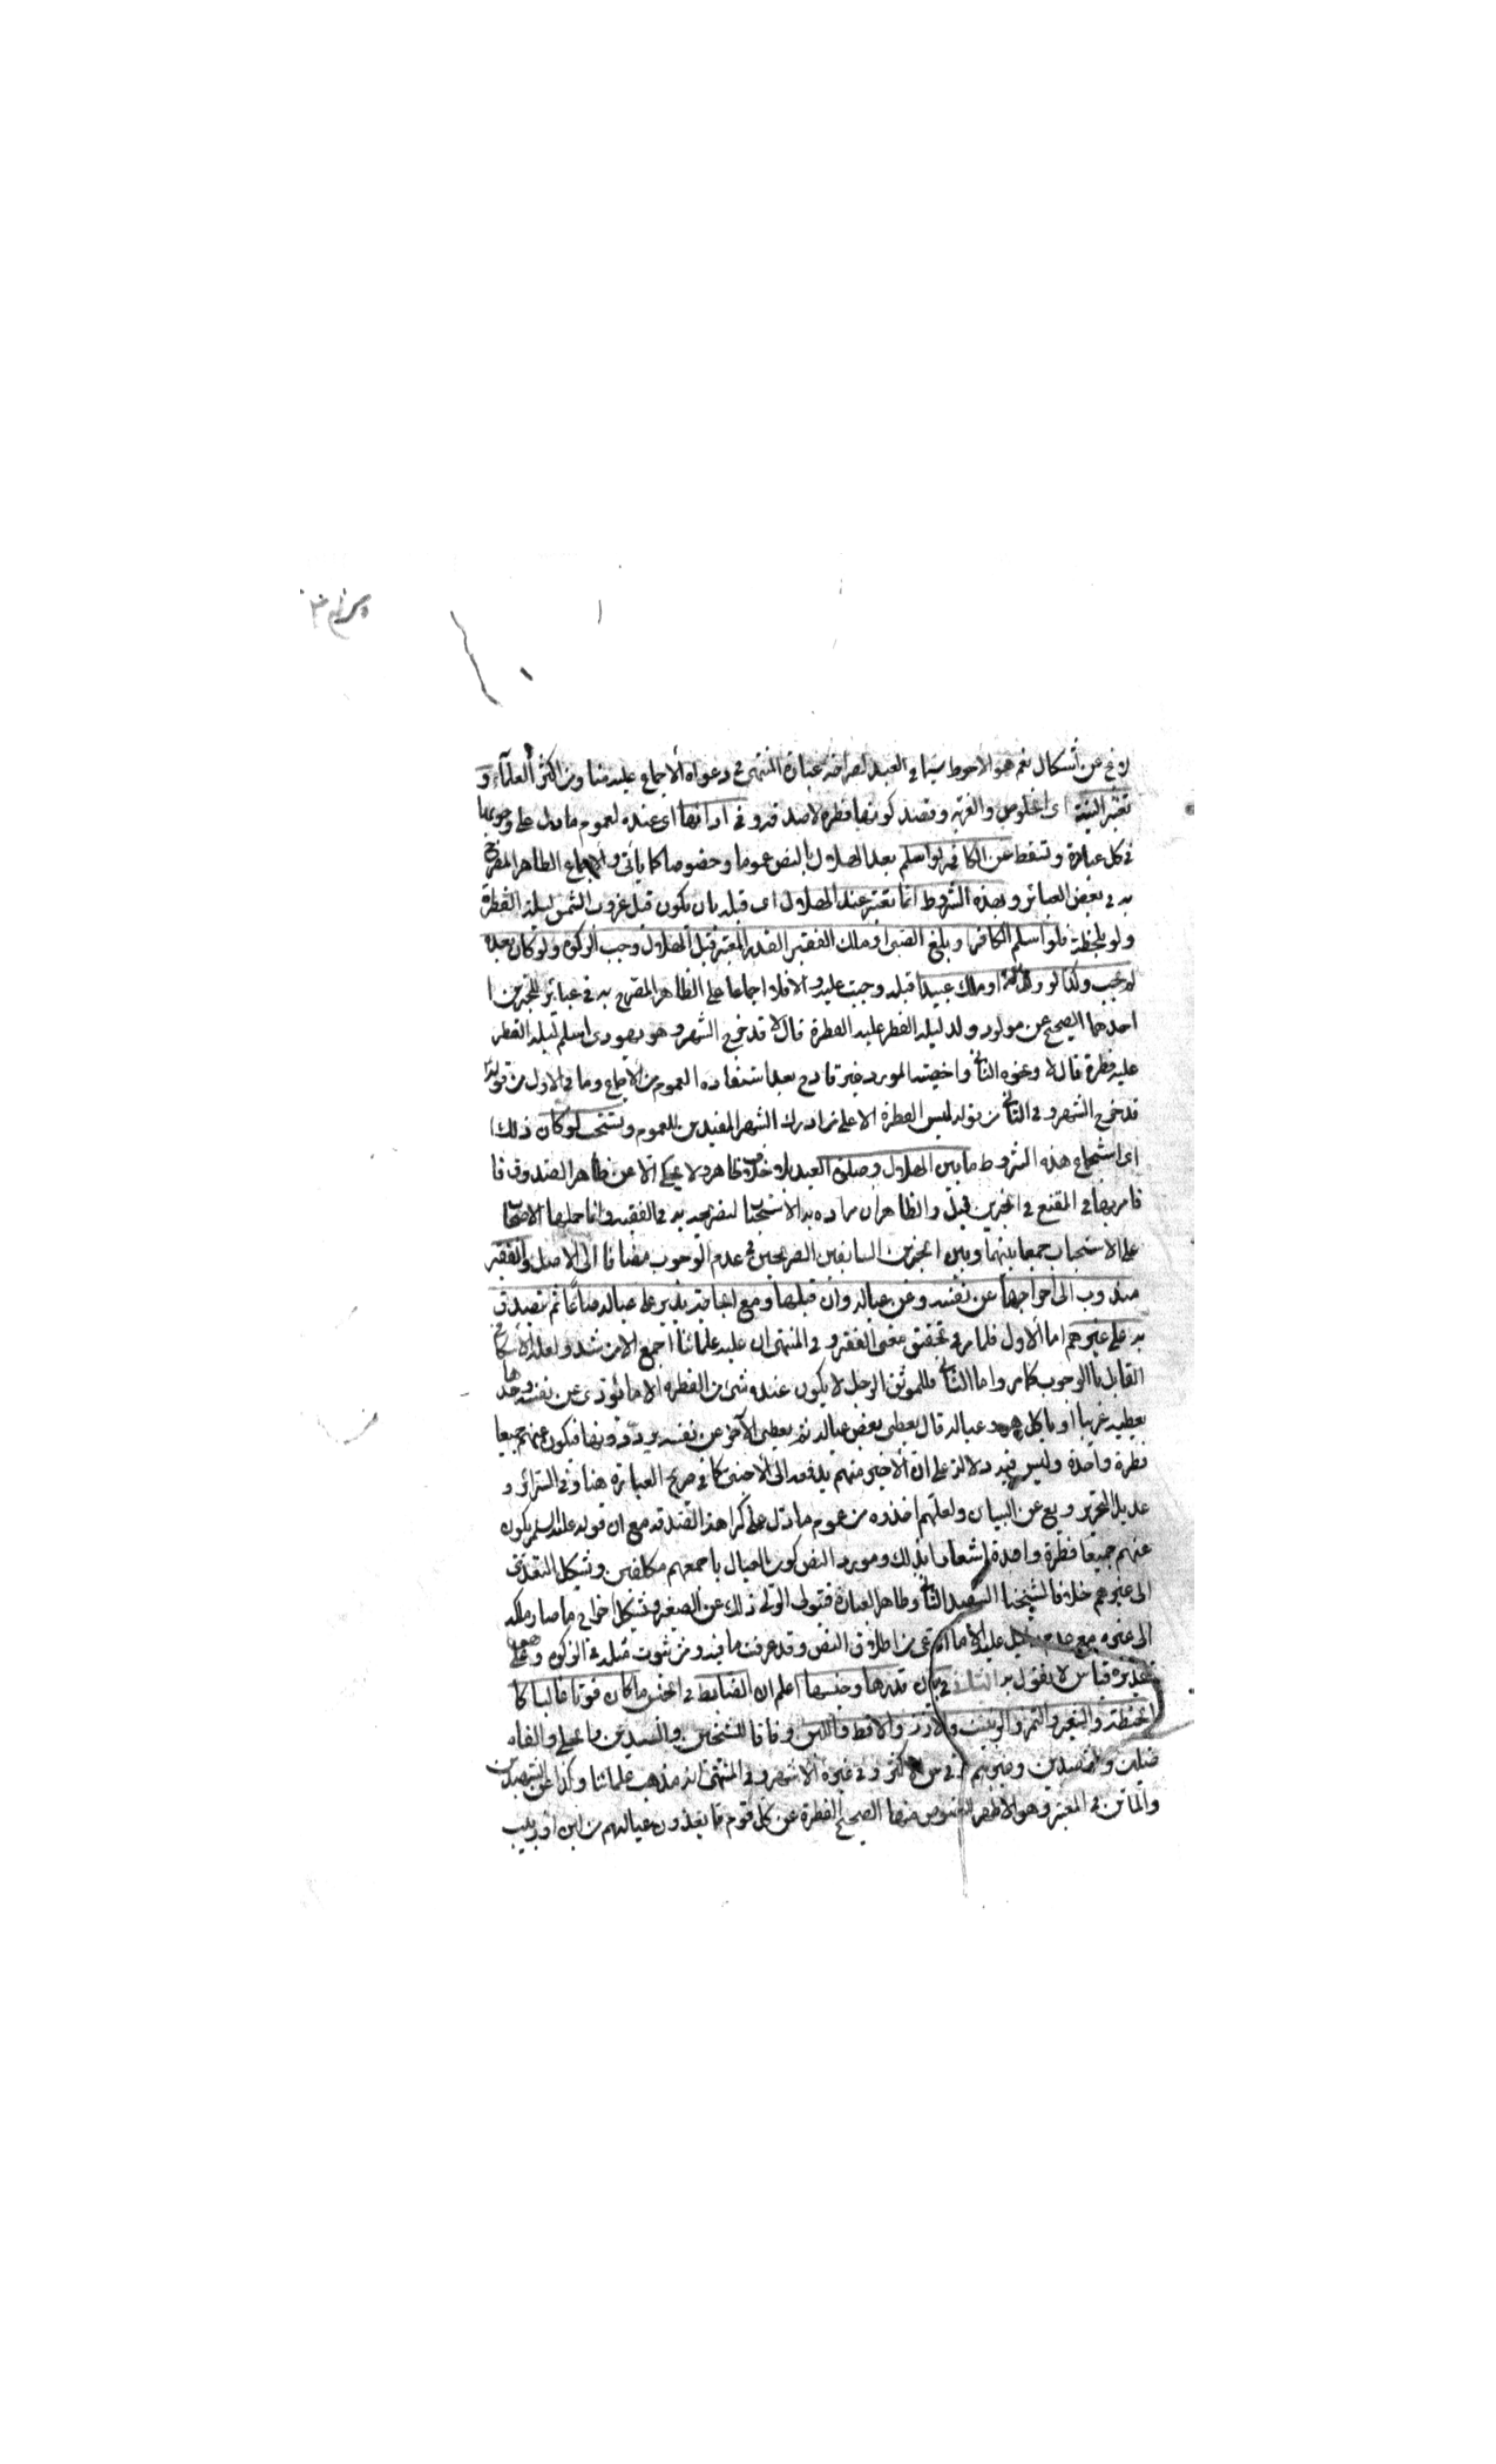 لا يخ عن أشكال نعم هو الاحوط سيما في العبد لصراحة عبارة المنتهى في دعواه الاجماع عليه منا ومن اكثر العلماء و
تعتبر النية اى الخلوص والقربة وقصد كونها فطرة لا صدقة وفى ادائها اى عنده لعموم ما دل على وجوبها
في كل عبادة وتسقط عن الكافر لو اسلم بعد الهلال بالنص عموما وخصوصا كما يأتى والاجماع الظاهر المصرح
به في بعض العبائر وهذه الشروط انما تعتبر عند الهلال اى قبله بان يكون قبل غروب الشمس ليلة الفطرة
ولو بلحظة فلو اسلم الكافر او بلغ الصبى او ملك الفقير القدر المعتبر قبل الهلال وجب الزكوة ولو كان بعده
لم يجب وكذا لو ولد له او ملك عبيدا قبله وجبت عليه والا فلا اجماعا على الظاهر المصرح به في عبائر للخبرين
احدهما الصحيح عن مولود ولد ليلة الفطر عليه الفطرة قال لا قد خرج الشهر وهو يهودى اسلم ليلة الفطر
عليه فطرة قال لا ونحوه الثانى واخصية المورد غير قادح بعد استفادة العموم من الاجماع وما في الاول من قوله
قد خرج الشهر وفى الثانى من قوله ليس الفطرة الا على من ادرك الشهر المفيدين للعموم ويستحب لو كان ذلك
اى استجماع هذه الشروط ما بين الهلال وصلوة العيد بلا خلاف ظاهر ولا يحكى الا عن ظاهر الصدوق فا
فامر بها في المقنع في الخبرين قيل والظاهر ان مراده به الاستحباب لتصريحه به في الفقيه وانما حملها الاصحاب
على الاستحباب جمعا بينهما وبين الخبرين السابقين الصريحين في عدم الوجوب مضافا الى الاصل والفقير
مندوب الى اخراجها عن نفسه وعن عياله وان قبلها ومع الحاجة يدير على عياله صاعا ثم يتصدق
به على غيرهم اما الاول فلما مر في تحقيق معنى الفقر وفى المنتهى ان عليه علمائنا اجمع الا من شذ ولعله الاسكافى
القايل بالوجوب كما مر واما الثانى فللموثق الرجل لا يكون عنده شئ من الفطرة الا ما يؤدى عن نفسه وحدها
يعطيه غريبا او ياكل هو وعياله قال يعطى بعض عياله ثم يعطى الآخر عن نفسه يرددونها فيكون عنهم جميعا
فطرة واحدة وليس فيه دلالة على ان الاخير منهم يدفعه الى الاجنبى كما في صريح العبارة هنا وفى السرائر و
عديل التحرير ويع عن البيان ولعلهم اخذوه من عموم ما دل على كراهة الصدقة مع ان قوله عليه السلم يكون
عنهم جميعا فطرة واحدة اشعارا بذلك ومورد النص كون العيال باجمعهم مكلفين ويشكل التعدى
الى غيرهم خلافا لشيخنا الشهيد الثانى وظاهر العبارة فيتولى الولى ذلك عن الصغير ويشكل اخراج ما صار ملكه
الى غيره مع عدم عليه الا ما ادعى من اطلاق النص وقد عرفت ما فيه ومن ثبوت مثله في الزكوة وهو على
تقديره قياس لا نقول به الثانى في بيان قدرها وجنسها اعلم ان الضابط في الجنس ما كان قوتا غالبا كا
الحنطة والشعير والتمر والزبيب والارز والاقط واللبن وفاقا للشيخين والسيدين والحلى والفا
ضلين والشهيدين وغيرهم وفى س الاكثر وفى غيره الاشهر وفى المنتهى انه مذهب علمائنا وكذا عن الشهيدين
والماتن في المعتبر وهو الاظهر للنصوص منها الصحيح الفطرة عن كل قوم ما يغذون عيالهم من لبن او زبيب